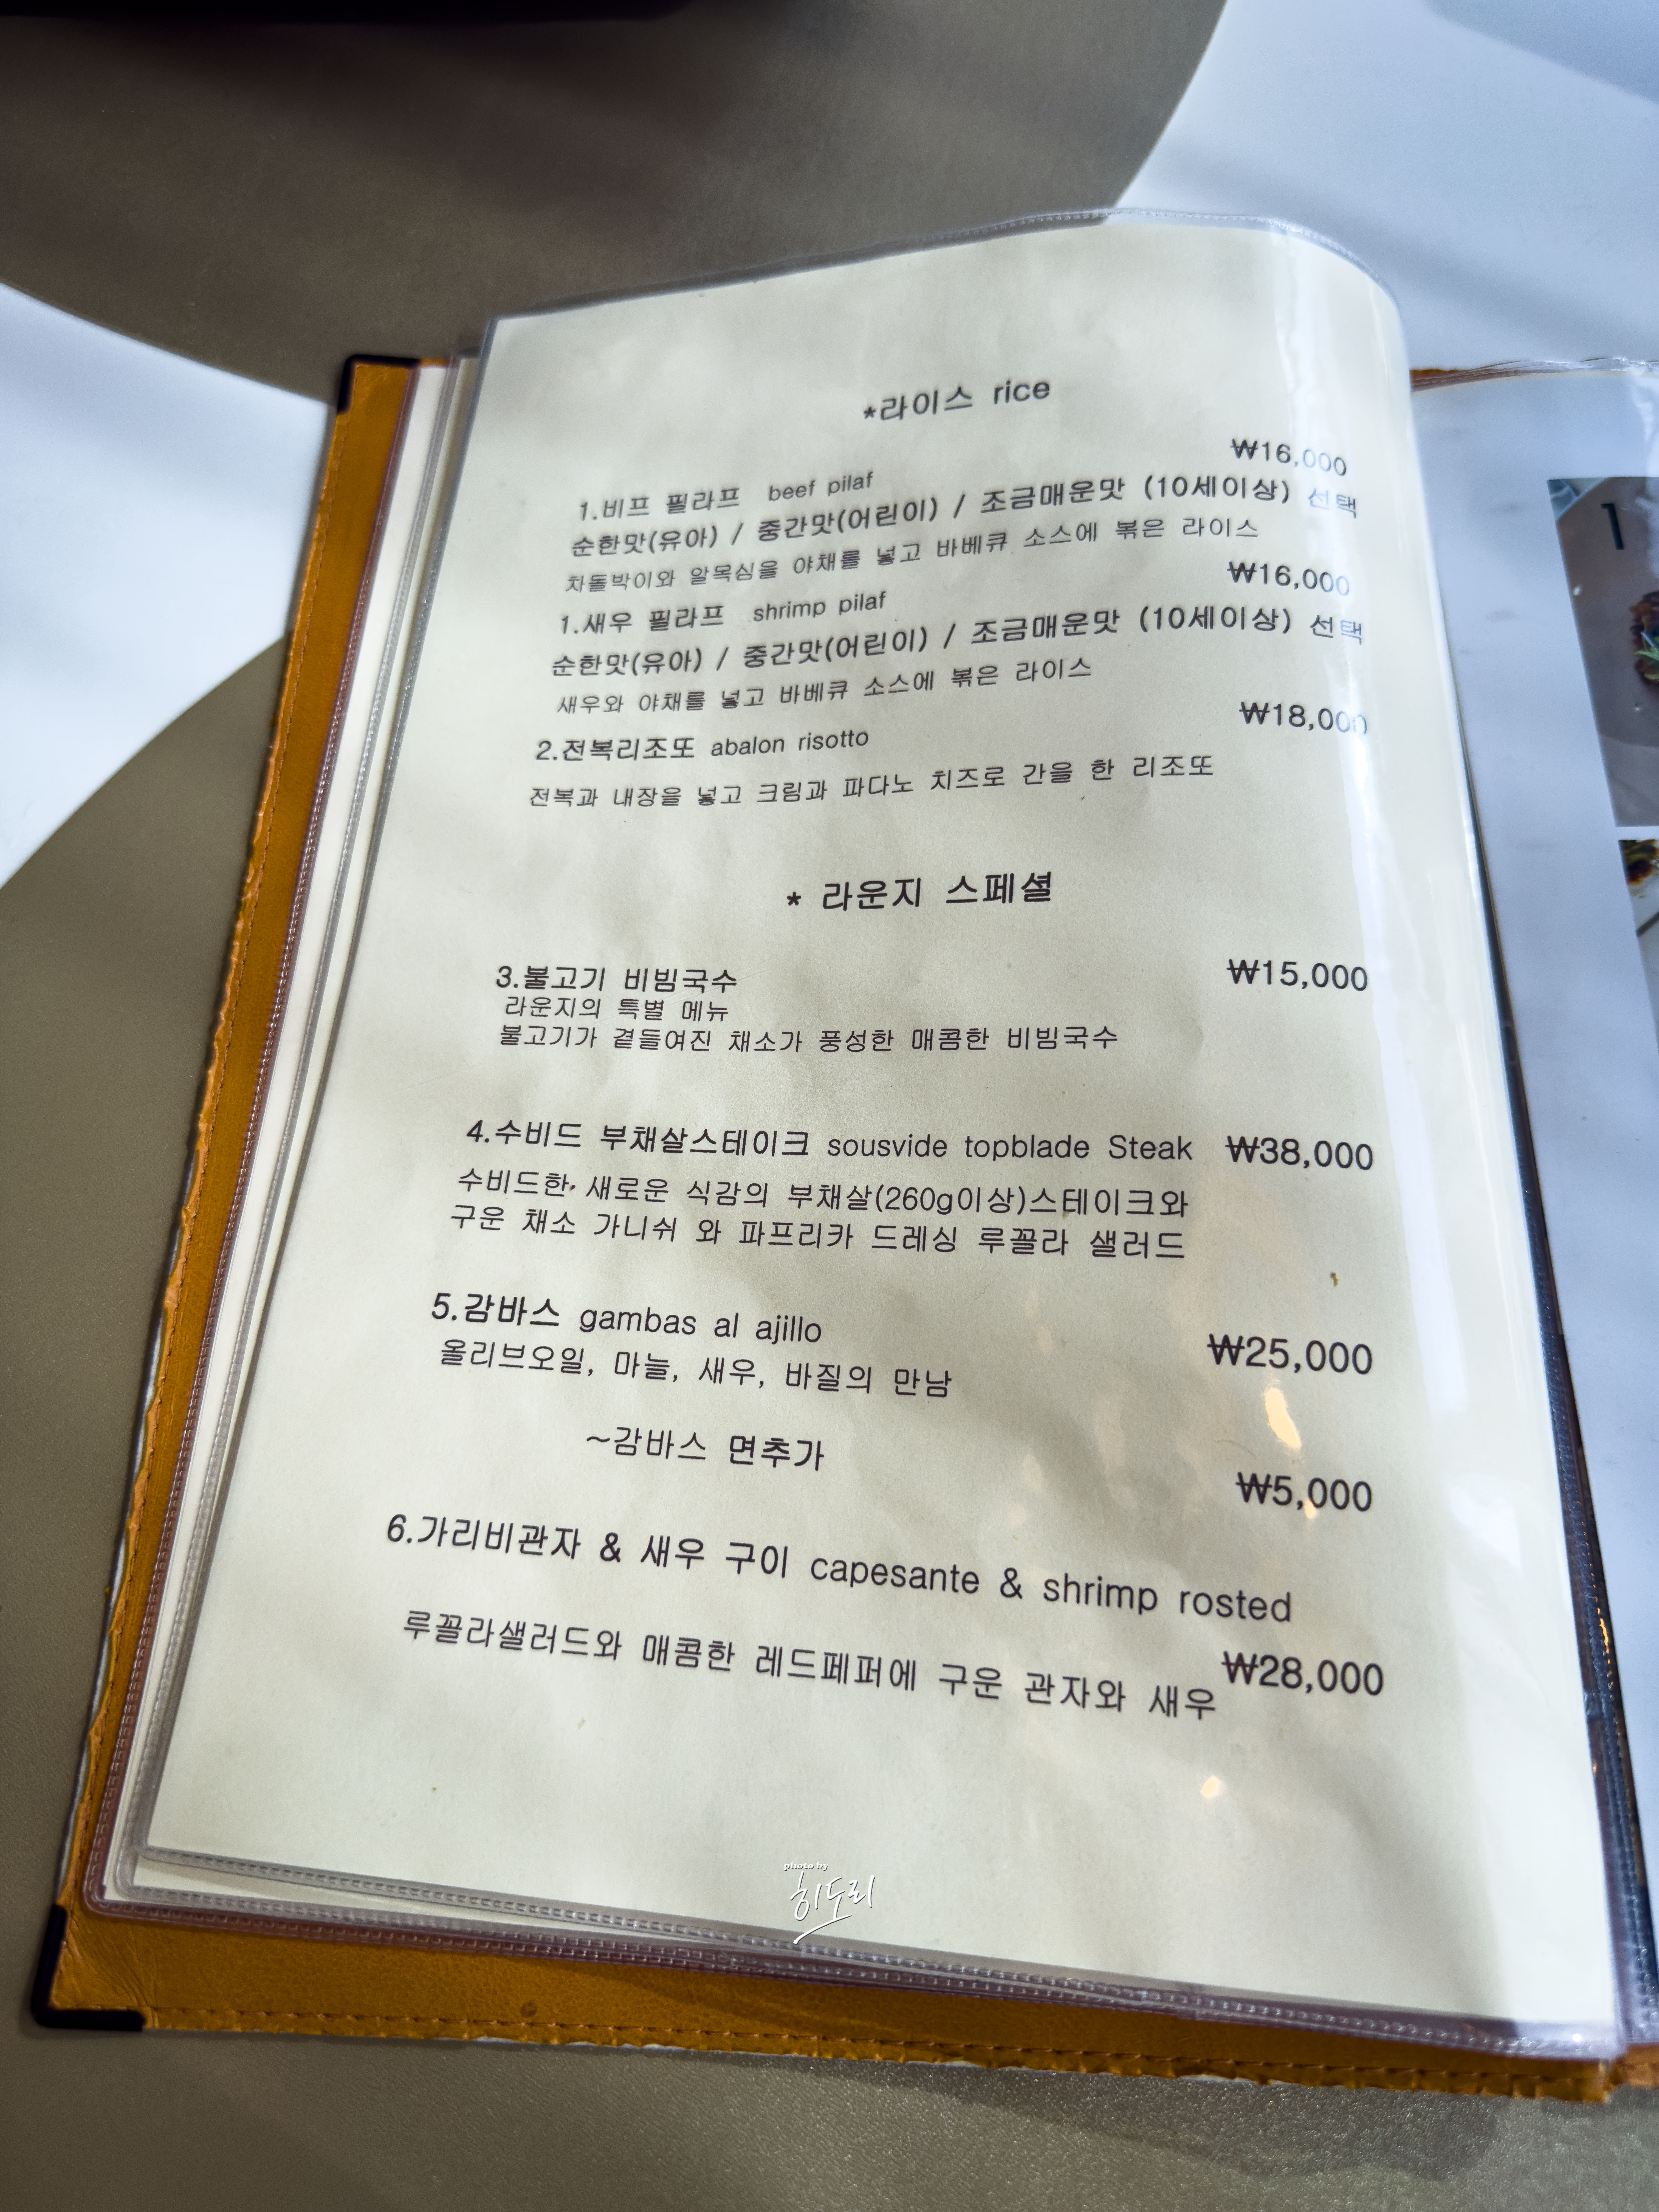 *라이스 rice
₩16,000
1.비프 필라프 beef pilaf
순한맛(유아) / 중간맛(어린이) / 조금매운맛 (10세이상) 선택
차돌박이와 알목심을 야채를 넣고 바베큐 소스에 볶은 라이스
₩16,000
1.새우 필라프 shrimp pilaf
순한맛(유아) / 중간맛(어린이) / 조금매운맛 (10세이상) 선택
새우와 야채를 넣고 바베큐 소스에 볶은 라이스
₩18,000
2.전복리조또 abalon risotto
전복과 내장을 넣고 크림과 파다노 치즈로 간을 한 리조또
* 라운지 스페셜
3.불고기 비빔국수 ₩15,000
라운지의 특별 메뉴
불고기가 곁들여진 채소가 풍성한 매콤한 비빔국수
4.수비드 부채살스테이크 sousvide topblade Steak ₩38,000
수비드한 새로운 식감의 부채살(260g이상)스테이크와
구운 채소 가니쉬 와 파프리카 드레싱 루꼴라 샐러드
5.감바스 gambas al ajillo
₩25,000
올리브오일, 마늘, 새우, 바질의 만남
~감바스 면추가
₩5,000
6.가리비관자 & 새우 구이 capesante & shrimp rosted
루꼴라샐러드와 매콤한 레드페퍼에 구운 관자와 새우 ₩28,000
1
photo by
히도리